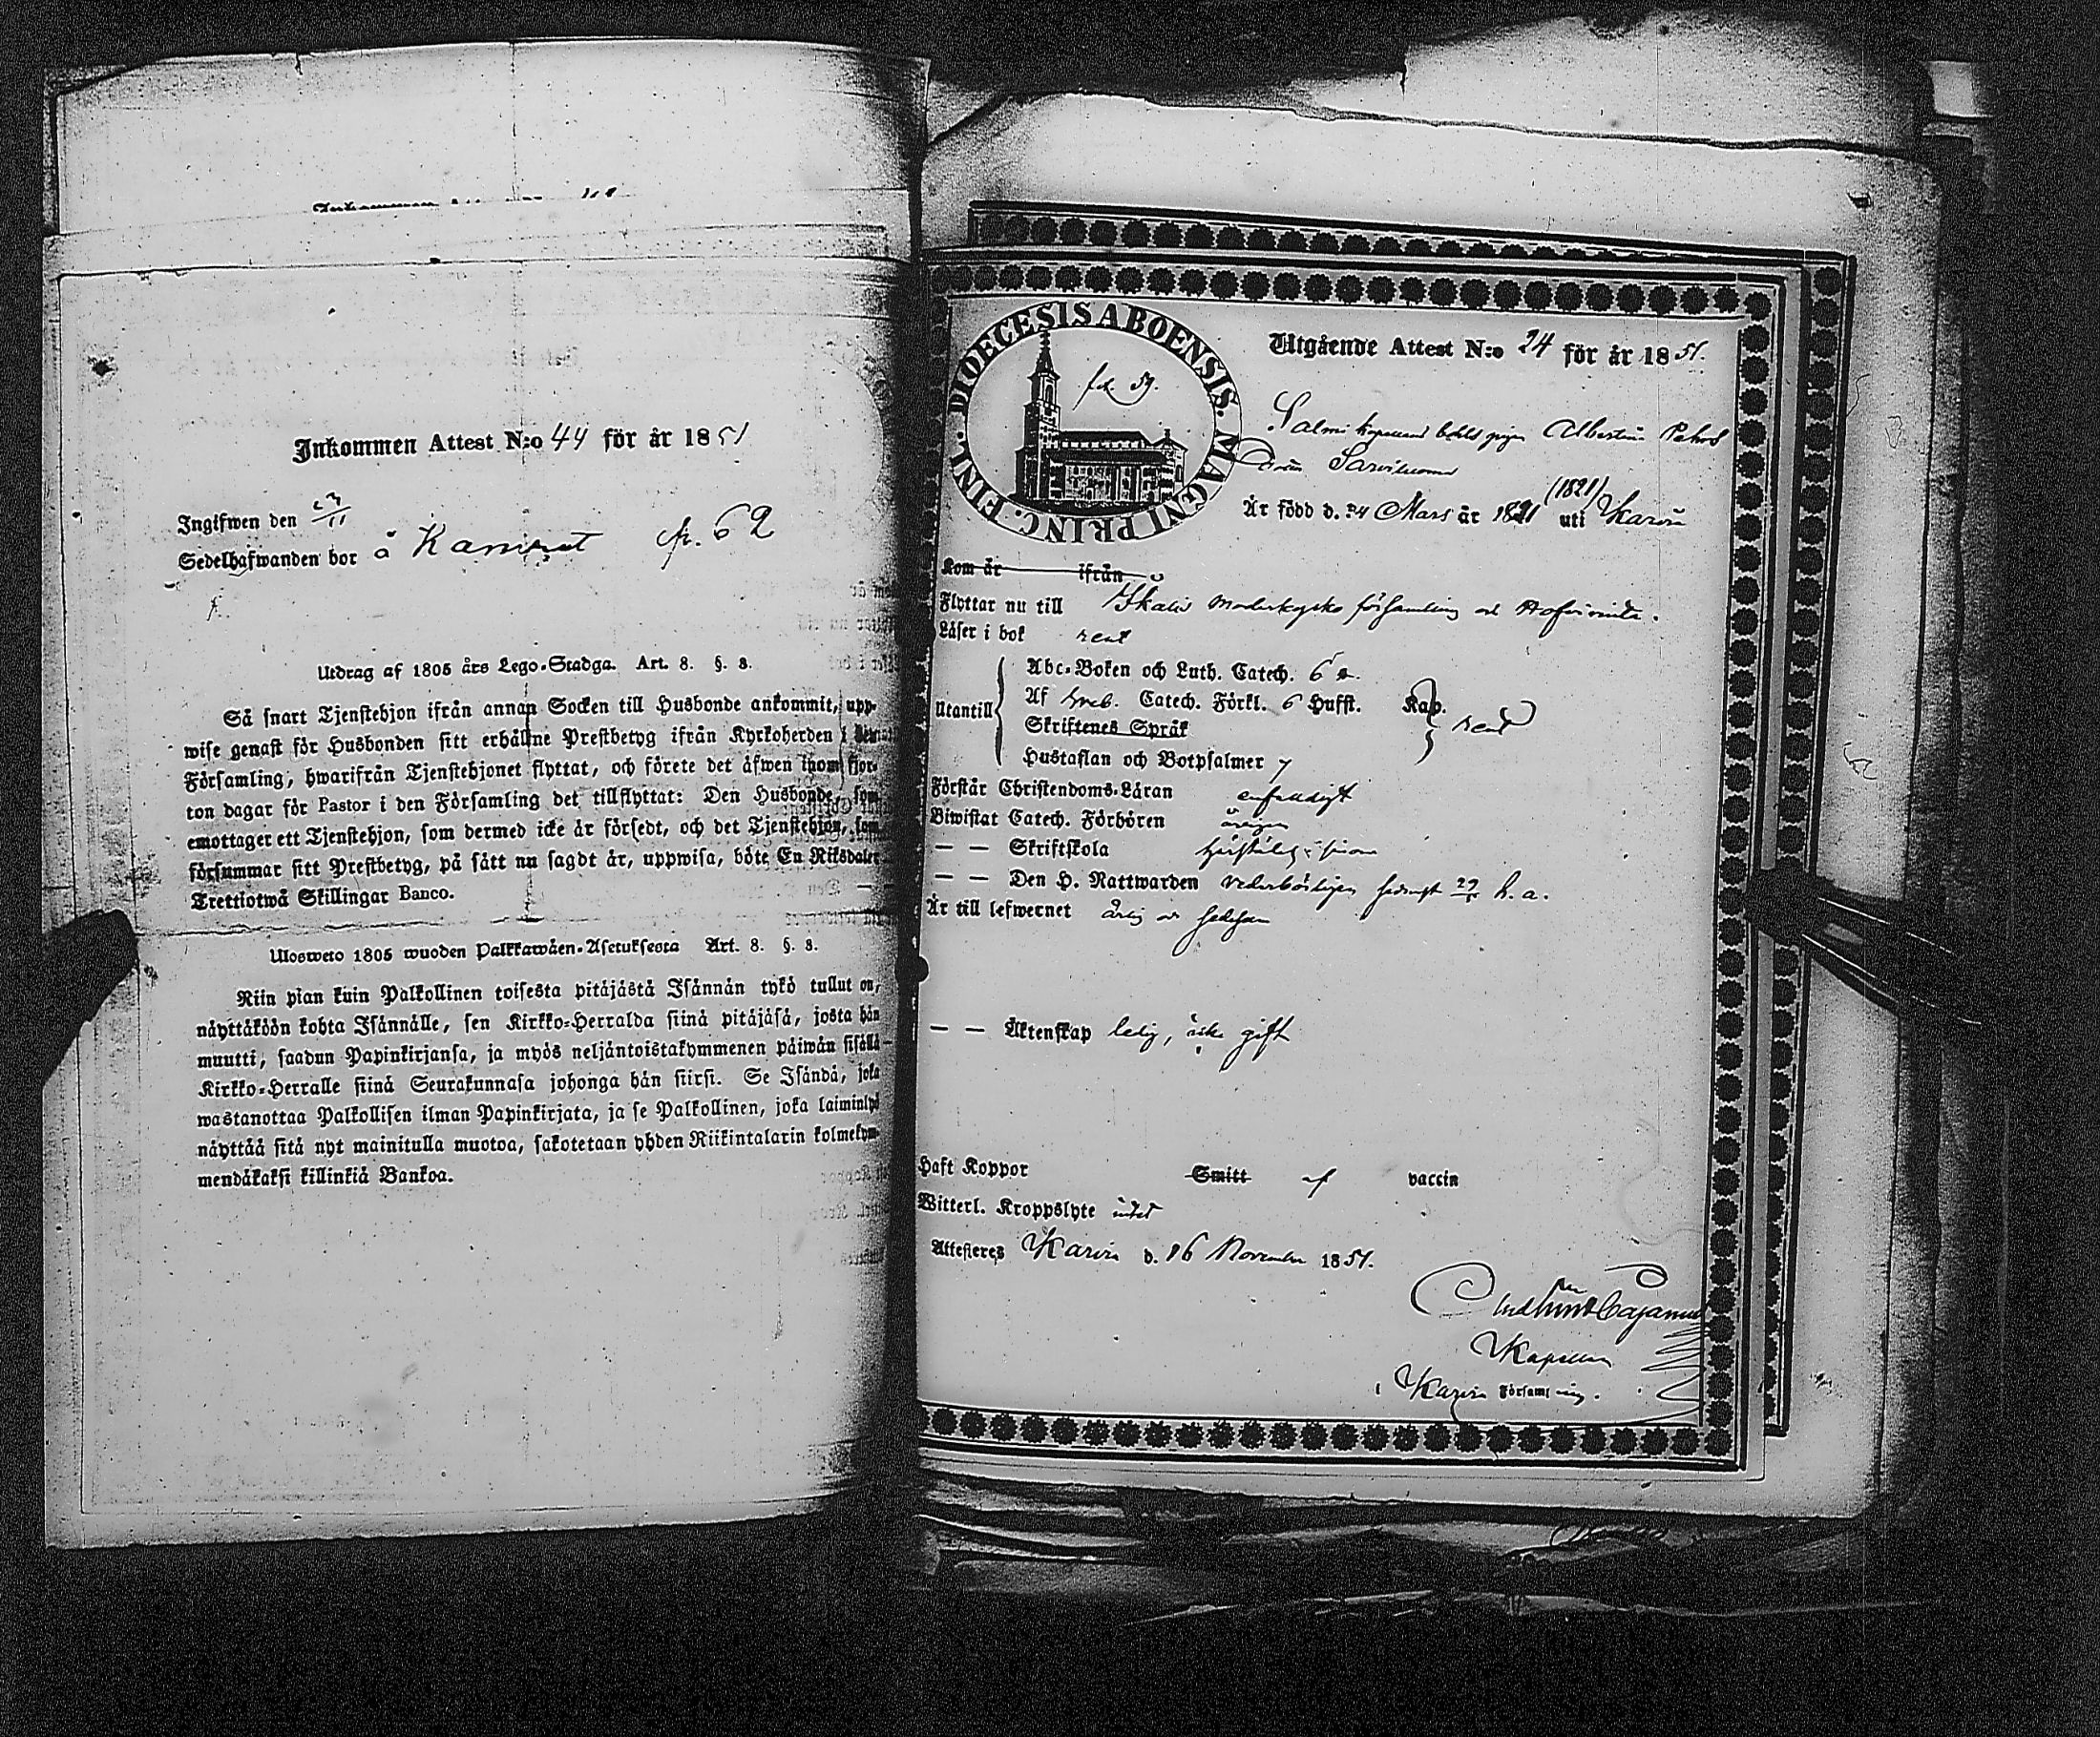 Inkommen Attest N:o 44 för år 1851
Ingifwen den 23/11
Sedelhafwanden bor å fr. 62
Utdrag af 1805 års Lego-Stadga. Art. 8. §. 8.
Så snart Tjenstehjon ifrån annan Socken till Husbonde ankommit, upp-
wise genast för Husbonden sitt erhållne Prestbetyg ifrån Kyrkoherden i
Församling, hwarifrån Tjenstehjonet flyttat, och förete det åfwen inom fjor-
ton dagar för Pastor i den Församling det tillflyttat: Den Husbonde, som
emottager ett Tjenstehjon, som dermed icke är försedt, och det Tjenstehjon, som
försummar sitt Prestbetyg, på sätt nu sagdt är, uppwisa, böte En Riksdaler
Trettiotwå Skillingar Banco.
Ulosweto 1805 wuoden Palkkawåen-Asetuksesta Art. 8. §. 8.
Niin pian kuin Palkollinen toisesta pitåjåstå Isånnån tykö tullut on,
nåyttåköön kohta Isånnålle, sen Kirkko-Herralda siinå pitåjåså, josta hån
muutti, saadun Papinkirjansa, ja myös neljåntoistakymmenen påiwån sisållå
Kirkko-Herralle siinå Seurakunnasa johonga hån siirsi. Se Isåndå, joka
wastanottaa Palkollisen ilman Papinkirjata, ja se Palkollinen, joka laiminlyö
nåyttåå sitå nyt mainitulla muotoa, sakotetaan yhden Riikintalarin kolmekym-
mendåkaksi killinkiå Bankoa.
DIOECESIS ABOENSIS. MAGNI PRINC. FINL.
59.
Utgående Attest N:o 24 för år 1851.
Salmi bolds pigan Albertina Pehrs
Är född d. 24 Mars år 1821 (1821) uti Karvia
Kom år ifrån
Flyttar nu till Ikalis Moderkyrko församling
Läser i bok rent
Utantill
Abc-Boken och Luth. Catech. 6
Af Catech. Förkl. 6 Hufst. Kap.
Skriftenes Språk rent
Hustaflan och Botpsalmer 7
Förstår Christendoms-Läran enfaldigt
Biwistat Catech. Förhören
— — Skriftskola
— — Den H. Nattwarden vederbörligen h. a.
Är till lefwernet ärlig
— — Äktenskap ledig, icke gift
Haft Koppor Smitt af vaccin
Witterl. Kroppslyte intet
Attesteres Karvia d. 16 November 1851.
Cajanus
Kapellan
i Karvia Församling.